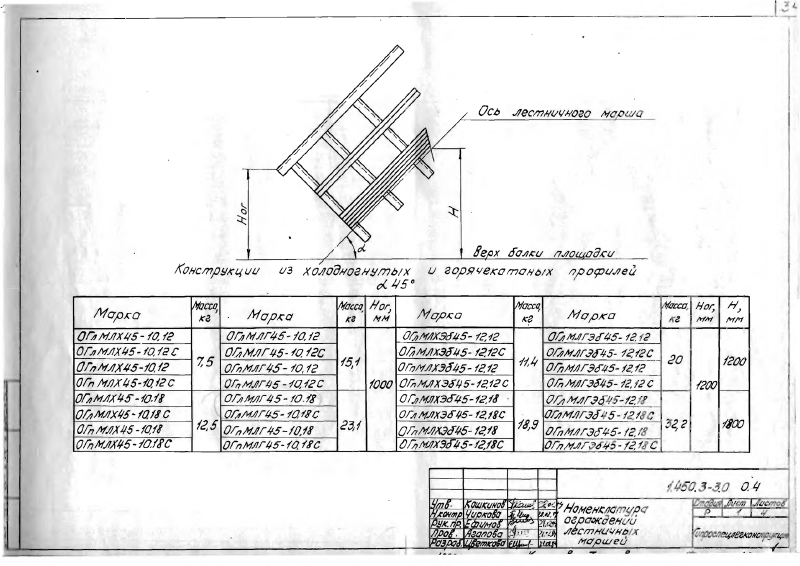 34
Ось лестничного марша
Hог
H
α
Верх балки площадки
Конструкции из холодногнутых и горячекатаных профилей
α 45°
Марка Масса, кг Марка Масса, кг Hог, мм Марка Масса, кг Марка Масса, кг Hог, мм H, мм
ОГлМЛХ45-10.12 7,5 ОГлМЛГ45-10.12 15,1 1000 ОГлМЛХЭб45-12.12 11,4 ОГлМЛГЭб45-12.12 20 1200 1200
ОГлМЛХ45-10.12С ОГлМЛГ45-10.12С ОГлМЛХЭб45-12.12С ОГлМЛГЭб45-12.12С
ОГпМЛХ45-10.12 ОГпМЛГ45-10.12 ОГпМЛХЭб45-12.12 ОГпМЛГЭб45-12.12
ОГпМЛХ45-10.12С ОГпМЛГ45-10.12С ОГпМЛХЭб45-12.12С ОГпМЛГЭб45-12.12С
ОГлМЛХ45-10.18 12,5 ОГлМЛГ45-10.18 23,1 ОГлМЛХЭб45-12.18 18,9 ОГлМЛГЭб45-12.18 32,2 1800
ОГлМЛХ45-10.18С ОГлМЛГ45-10.18С ОГлМЛХЭб45-12.18С ОГлМЛГЭб45-12.18С
ОГпМЛХ45-10.18 ОГпМЛГ45-10.18 ОГпМЛХЭб45-12.18 ОГпМЛГЭб45-12.18
ОГпМЛХ45-10.18С ОГпМЛГ45-10.18С ОГпМЛХЭб45-12.18С ОГпМЛГЭб45-12.18С
1.450.3-3.0 0.4
Утв. Кошкинов
Н.контр Чиркова
Рук.пр. Ефимов
Пров. Агапова
Разраб. Цветкова
Номенклатура
ограждений
лестничных
маршей
Стадия Лист Листов
Р 1 4
Гипроспецлегконструкция